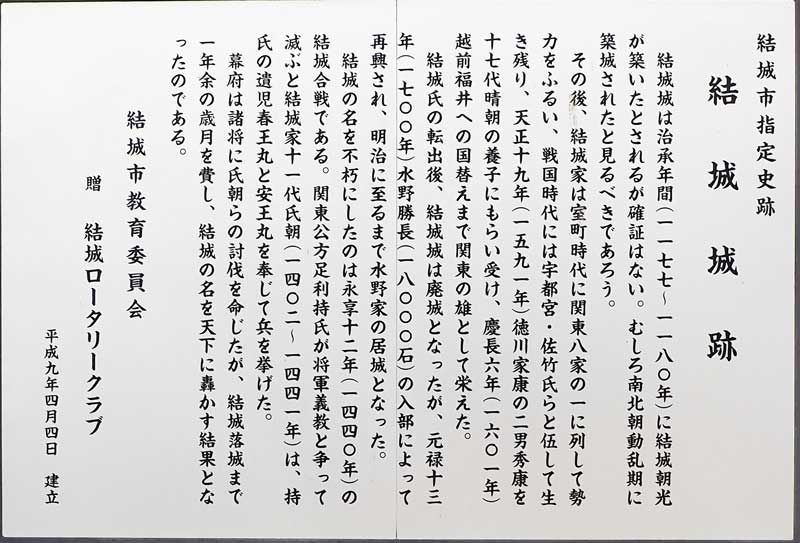 結城市指定史跡
結城城跡
結城城は治承年間(一一七七～一一八〇年)に結城朝光
が築いたとされるが確証はない。むしろ南北朝動乱期に
築城されたと見るべきであろう。
その後、結城家は室町時代に関東八家の一に列して勢
力をふるい、戦国時代には宇都宮・佐竹氏らと伍して生
き残り、天正十九年(一五九一年)徳川家康の二男秀康を
十七代晴朝の養子にもらい受け、慶長六年(一六〇一年)
越前福井への国替えまで関東の雄として栄えた。
結城氏の転出後、結城城は廃城となったが、元禄十三
年(一七〇〇年)水野勝長(一八〇〇〇石)の入部によって
再興され、明治に至るまで水野家の居城となった。
結城の名を不朽にしたのは永享十二年(一四四〇年)の
結城合戦である。関東公方足利持氏が将軍義教と争って
滅ぶと結城家十一代氏朝(一四〇二～一四四一年)は、持
氏の遺児春王丸と安王丸を奉じて兵を挙げた。
幕府は諸将に氏朝らの討伐を命じたが、結城落城まで
一年余の歳月を費し、結城の名を天下に轟かす結果とな
ったのである。
結城市教育委員会
贈 結城ロータリークラブ
平成九年四月四日 建立